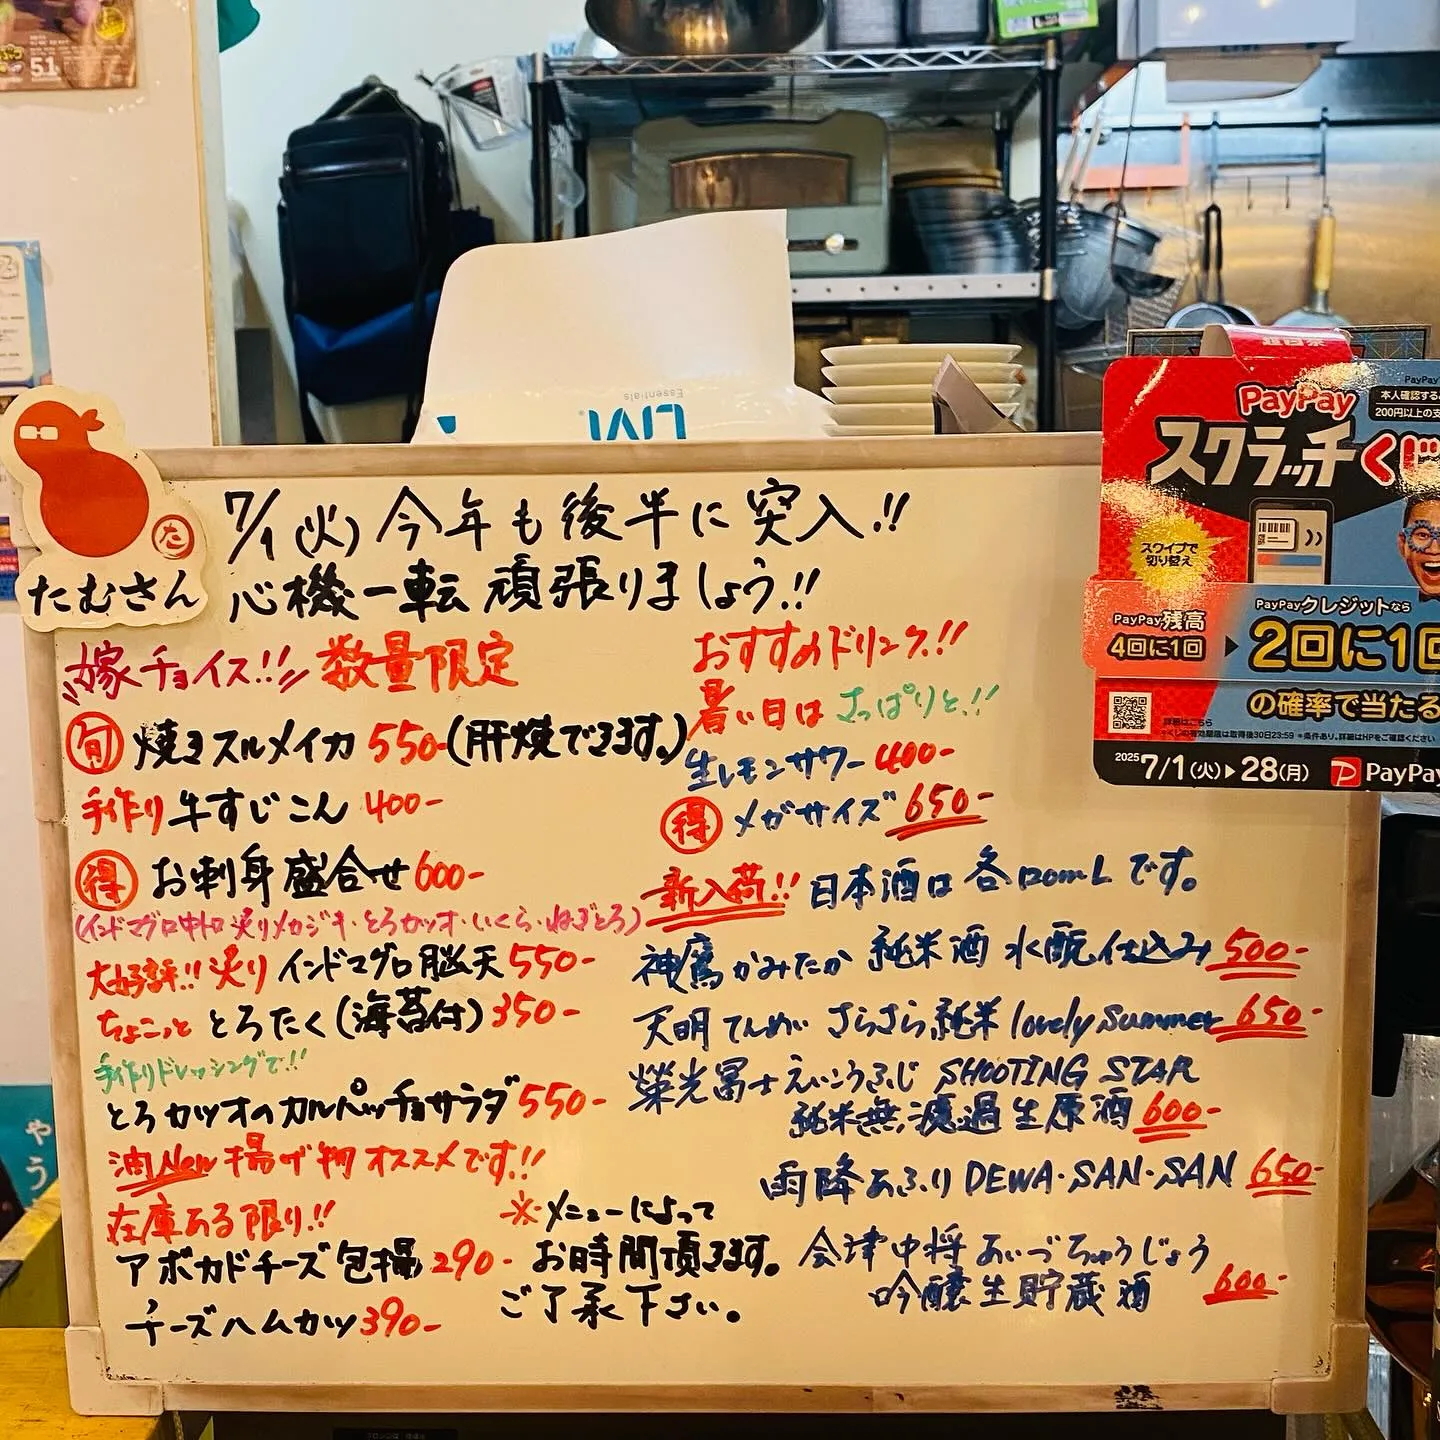 51
LIVI
Essentials
LIVI
たむさん
た
7/1(火)今年も後半に突入!!
心機一転 頑張りましょう!!
嫁チョイス!! 数量限定
旬 焼きスルメイカ 550-(肝焼できます。)
手作り 牛すじこん 400-
得 お刺身盛合せ 600-
(インドマグロ中トロ・炙りメカジキ・とろカツオ・いくら・ねぎとろ)
大好評!! 炙り インドマグロ脳天 550-
ちょこっと とろたく(海苔付) 350-
手作りドレッシングで!!
とろカツオのカルパッチョサラダ 550-
油New 揚げ物オススメです!!
在庫ある限り!!
アボカドチーズ包揚 290-
チーズハムカツ 390-
※メニューによって
お時間頂きます。
ご了承下さい。
おすすめドリンク!!
暑い日は さっぱりと!!
生レモンサワー 400-
得 メガサイズ 650-
新入荷!! 日本酒は 各120mLです。
神鷹 かみたか 純米酒 水酛仕込み 500-
天明 てんめい さらさら純米 lovely summer 650-
榮光冨士 えいこうふじ SHOOTING STAR
純米無濾過生原酒 600-
雨降 あふり DEWA・SAN・SAN 650-
会津中将 あいづちゅうじょう
吟醸生貯蔵酒 600-
PayPay
スクラッチくじ
本人確認する
200円以上の支
スワイプで
切り替え
PayPay残高
4回に1回
PayPayクレジットなら
2回に1回
の確率で当たる
詳細はこちら
2025 7/1(火)▶28(月)
PayPay
やう